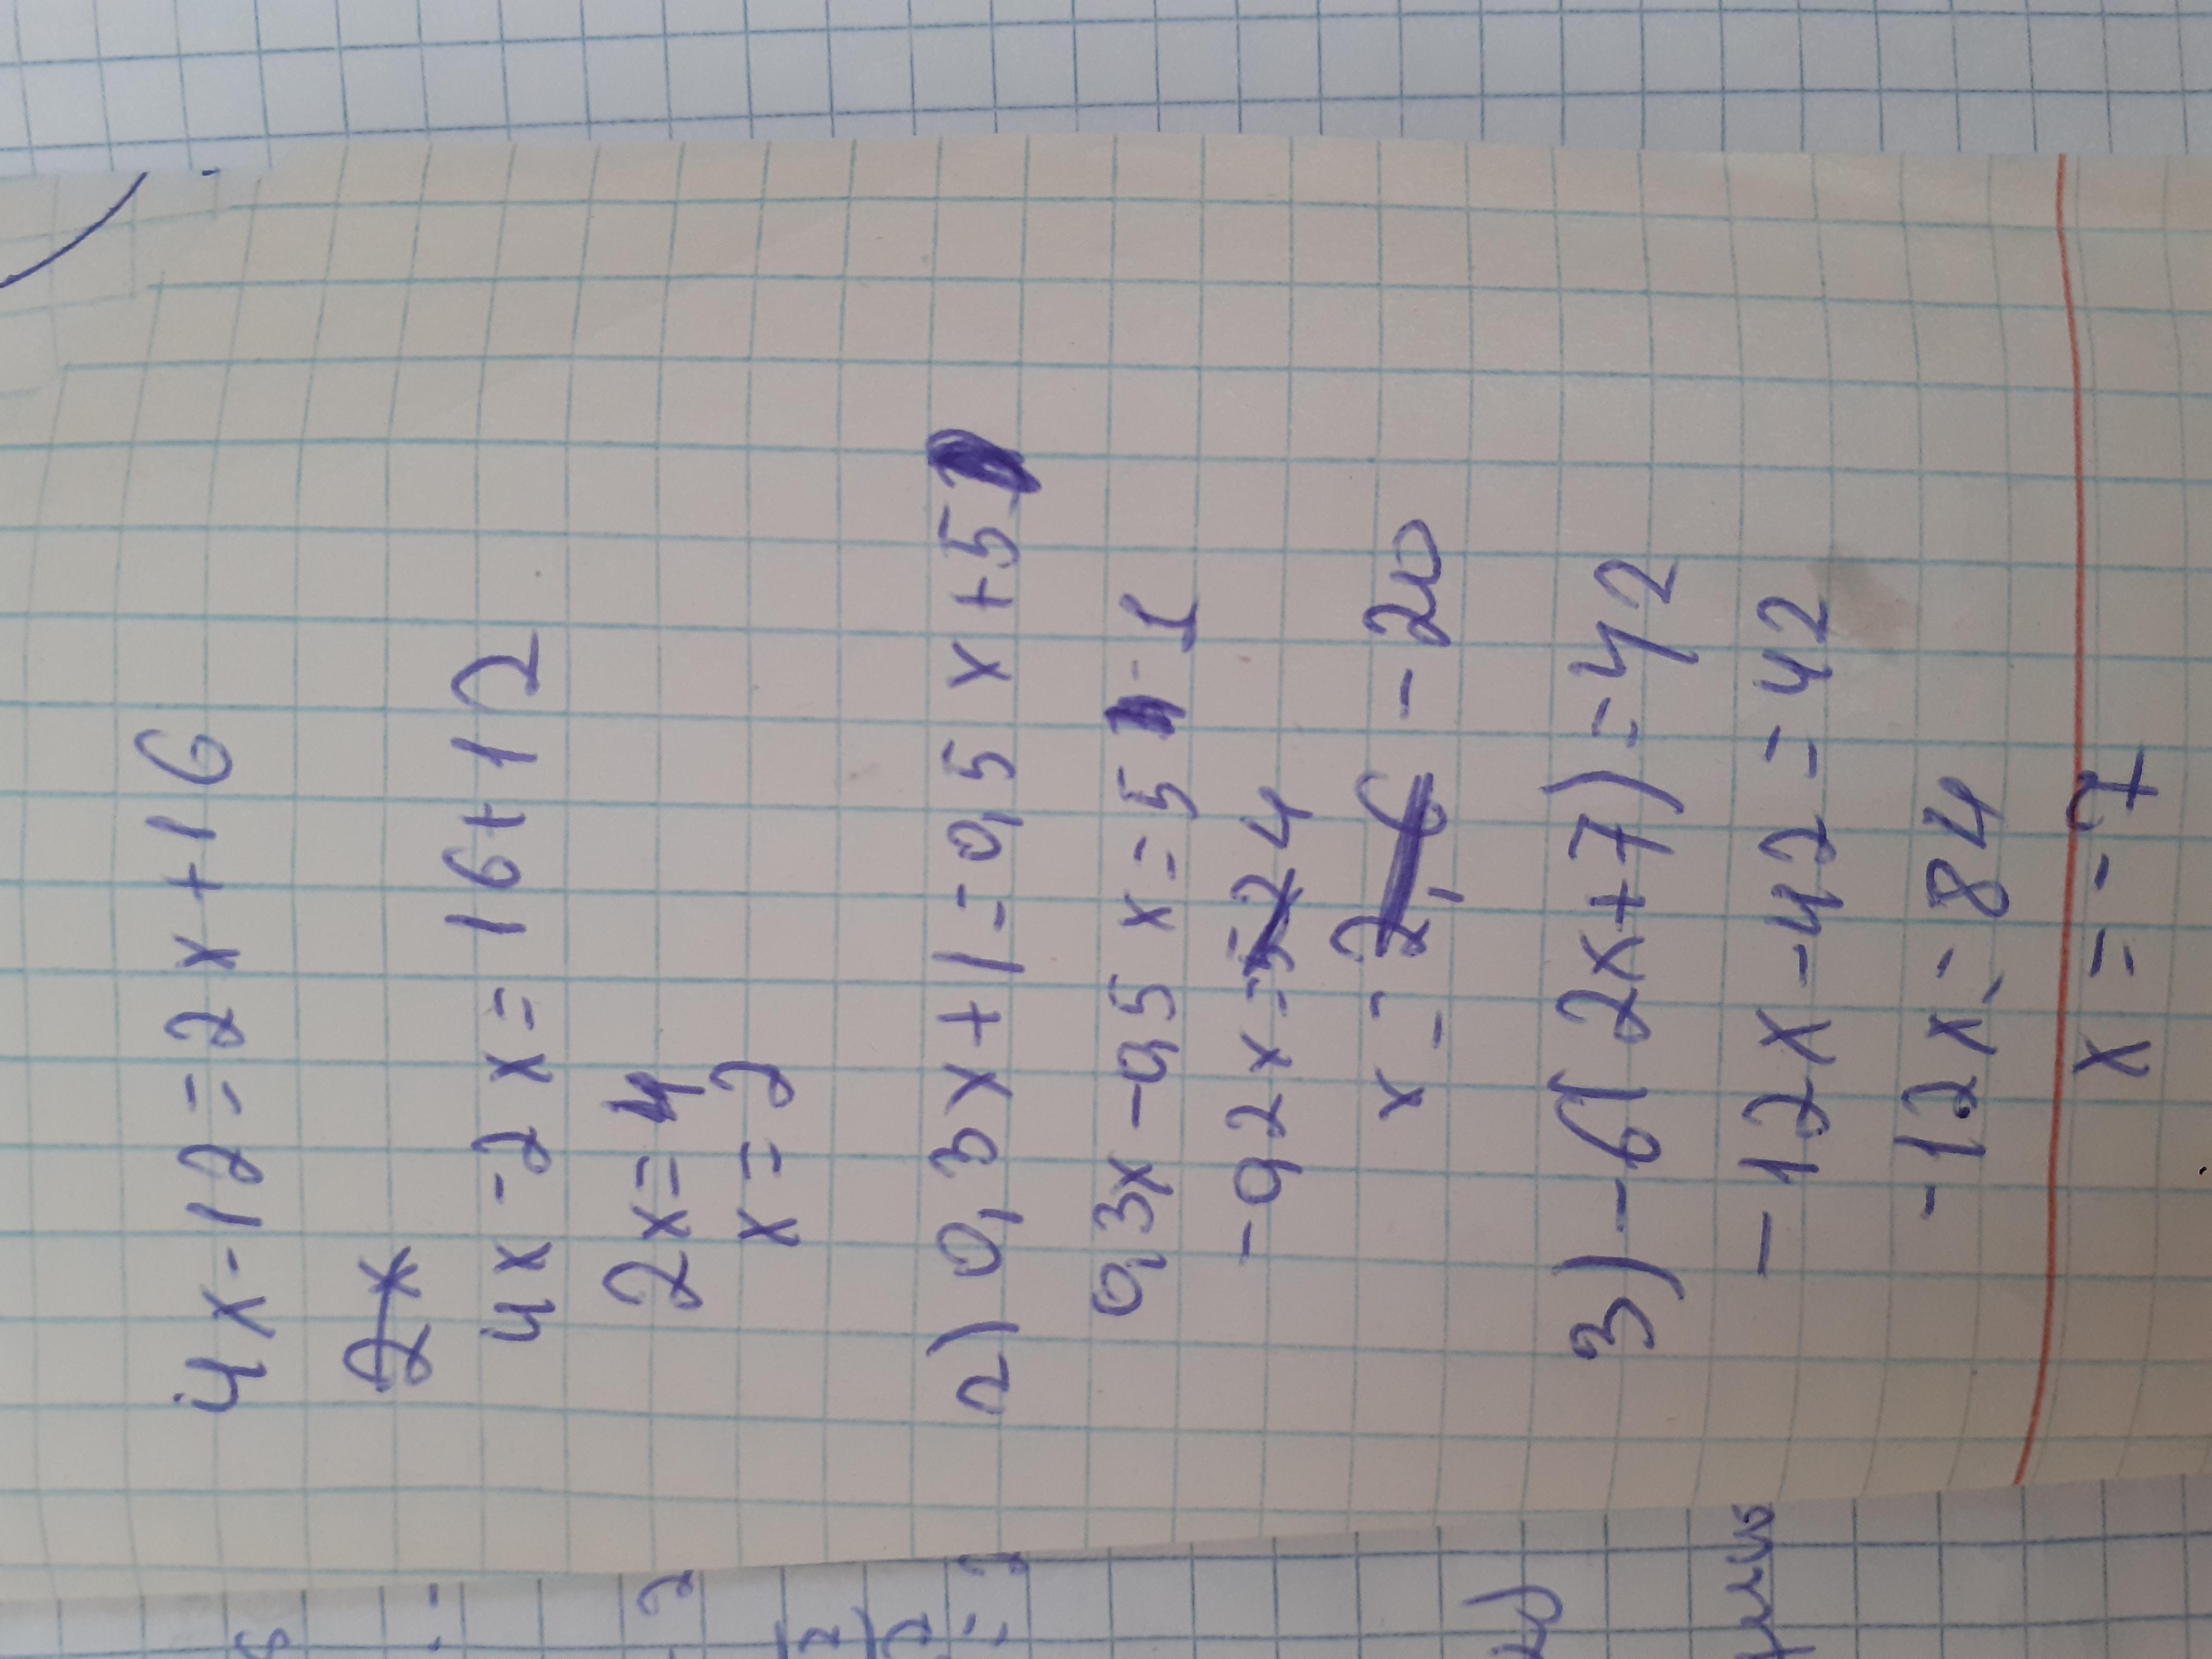 4x-12=2x+16
4x-2x=16+12
2x=4
x=2
2) 0,3x+1=0,5x+5
0,3x-0,5x=5-1
-0,2x=4
x=-20
3) -6(2x+7)=42
-12x-42=42
-12x=84
x=-7